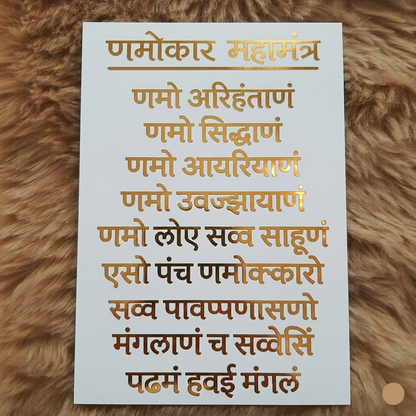 णमोकार महामंत्र
णमो अरिहंताणं
णमो सिद्धाणं
णमो आयरियाणं
णमो उवज्झायाणं
णमो लोए सव्व साहूणं
एसो पंच णमोक्कारो
सव्व पावप्पणासणो
मंगलाणं च सव्वेसिं
पढमं हवई मंगलं